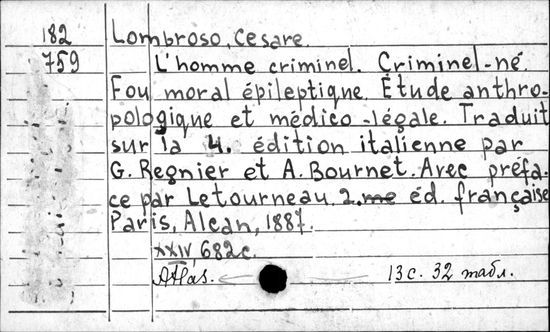 182 Lombroso, Cesare.
759 L'homme criminel. Criminel-né.
Fou moral épileptique. Étude anthro-
pologique et médico-légale. Traduit
sur la 4. édition italienne par
G. Regnier et A. Bournet. Avec préfa-
ce par Letourneau 2.me éd. française
Paris, Alcan, 1887.
XXIV, 682c.
Atlas. 13 c. 32 табл.